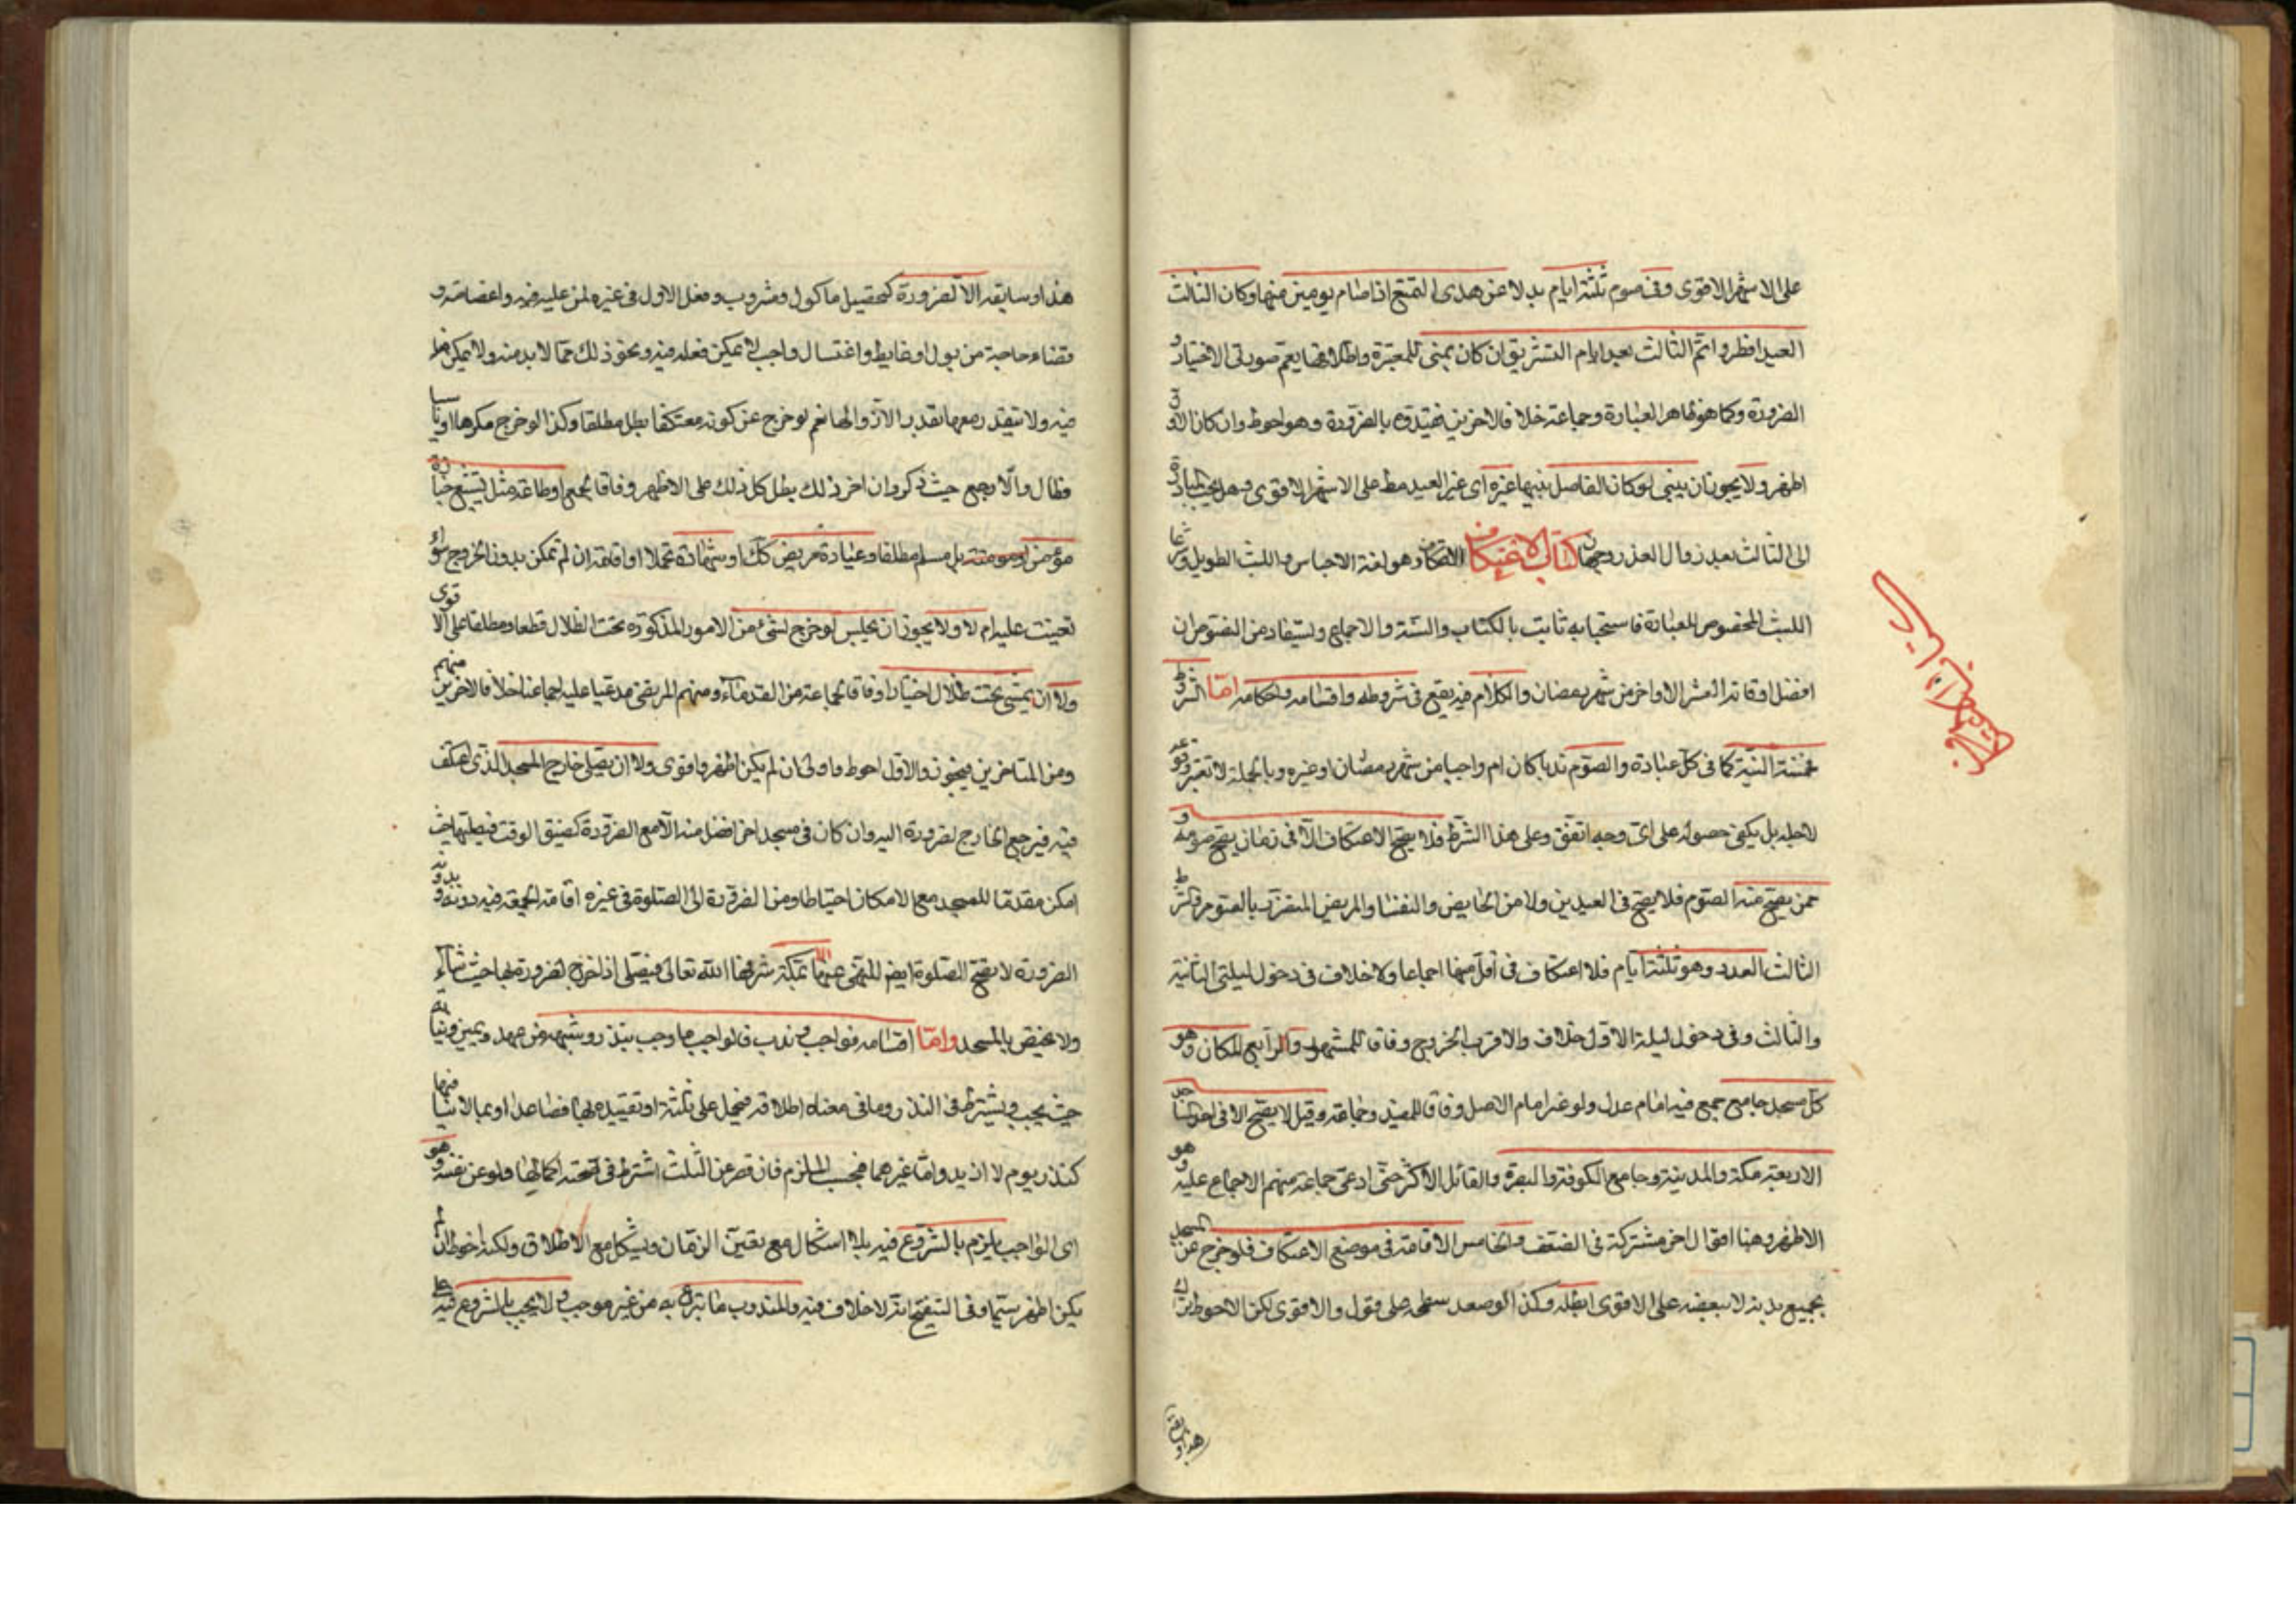 على الاشهر الاقوى وفى صوم ثلثة ايام بدلا عن هدى التمتع اذا صام يومين منها وكان الثالث
العيد افطر واتم الثالث بعد ايام التشريق ان كان بمنى للمعتبرة واطلاقها يعم صورتى الاختيار و
الضرورة وكما هو ظاهر العبارة وجماعة خلافا لاخرين فقيدوه بالضرورة وهو احوط وان كان الاول
اظهر ولا يجوز ان يبنى لو كان الفاصل بينها غيره اى غير العيد مط على الاشهر الاقوى وهل يجب المبادرة
الى الثالث بعد زوال العذر وجهان كتاب الاعتكاف وهو لغة الاحتباس واللبث الطويل وشرعا
اللبث المخصوص للعبادة فاستحبابه ثابت بالكتاب والسنة والاجماع ويستفاد من النصوص ان
افضل اوقاته العشر الاواخر من شهر رمضان والكلام فيه يقع فى شروطه واقسامه واحكامه امّا الشروط
فخمسة النية كما فى كل عبادة والصوم ندبا كان ام واجبا من شهر رمضان او غيره وبالجملة لا تعتبر وقوعه
لاجله بل يكفى حصوله على اى وجه اتفق وعلى هذا الشرط فلا يصح الاعتكاف الا فى زمان يصح صومه و
ممن يصح منه الصوم فلا يصح فى العيدين ولا من الحايض والنفسا والمريض المتضرر بالصوم والشرط
الثالث العدد وهو ثلثة ايام فلا اعتكاف فى اقل منها اجماعا ولا خلاف فى دخول ليلتى الثانية
والثالث وفى دخول ليلة الاول خلاف والاقرب الخروج وفاقا للمشهور والرابع المكان وهو
كل مسجد جامع جمع فيه امام عدل ولو غير امام الاصل وفاقا للمفيد وجماعة وقيل لا يصح الا فى احد المساجد
الاربعة مكة والمدينة وجامع الكوفة والبصرة والقائل الاكثر حتى ادعى جماعة منهم الاجماع عليه وهو
الاظهر وهنا اقوال اخر مشتركة فى الضعف والخامس الاقامة فى موضع الاعتكاف فلو خرج عن المسجد
بجميع بدنه لا ببعضه على الاقوى ابطله وكذا لو صعد سطحه على قول والاقوى لكن الاحوط تركه
هذا وسابقه الا لضرورة كتحصيل ماكول ومشروب وفعل الاول فى غيره لمن عليه فيه واغضاضة و
قضاء حاجة من بول او غايط واغتسال واجب لا يمكن فعله فيه ونحو ذلك مما لا بد منه ولا يمكن فعله
فيه ولا يتقدر معها بقدر الا زوالها نعم لو خرج عن كونه معتكفا بطل مطلقا وكذا لو خرج مكرها او ناسيا
فطال والا رجع حيث ذكر وان اخر ذلك بطل كل ذلك على الاظهر وفاقا لجمع او طاعة مثل تشييع جنازة
مؤمن او مومنة بل مسلم مطلقا وعيادة مريض كك او شهادة تحملا او اقامة ان لم تمكن بدون الخروج سواء
تعينت عليه ام لا ولا يجوز ان يجلس لو خرج لشئ من الامور المذكورة تحت الظلال قطعا ومطلقا على الاقوى
ولا ان يمشى تحت ظلال اختيارا وفاقا لجماعة من القدماء ومنهم المرتضى مدعيا عليه اجماعنا خلافا لاخرين منهم
ومن المتاخرين فيجوز والاول احوط واولى ان لم يكن اظهر واقوى ولا ان يصلى خارج المسجد الذى اعتكف
فيه فيرجع الخارج لضرورة اليه وان كان فى مسجد اخر افضل منه الا مع الضرورة كضيق الوقت فيصليها حيث
امكن مقدما للمسجد مع الامكان احتياطا ومن الضرورة الى الصلوة فى غيره اقامة الجمعة فيه دونه وبدونه
الضرورة لا يصح الصلوة ايضا للنهى عنها الا بمكة شرفها الله تعالى فيصلى اذا خرج لضرورة بها حيث شاء
ولا يختص بالمسجد وامّا اقسامه فواجب وندب فالواجب ما وجب بنذر وشبهه من عهد ويمين ونيابة
حيث يجب ويشترط فى النذر وما فى معناه اطلاقه فيحمل على ثلثة او تقييده بها فصاعدا او بما لا ينافيها
كنذر يوم لا ازيد واما غيرهما فبحسب الملزم فان قصر عن الثلث اشترط فى صحته اكمالها ولو عن نفسه وهو
اى الواجب يلزم بالشروع فيه بلا اشكال مع تعين الزمان ويشكل مع الاطلاق ولكنه احوط ان لم
يكن اظهر سيما وفى التنقيح انه لا خلاف فيه والمندوب ما تبرع به من غير موجب ولا يجب بالشروع فيه على